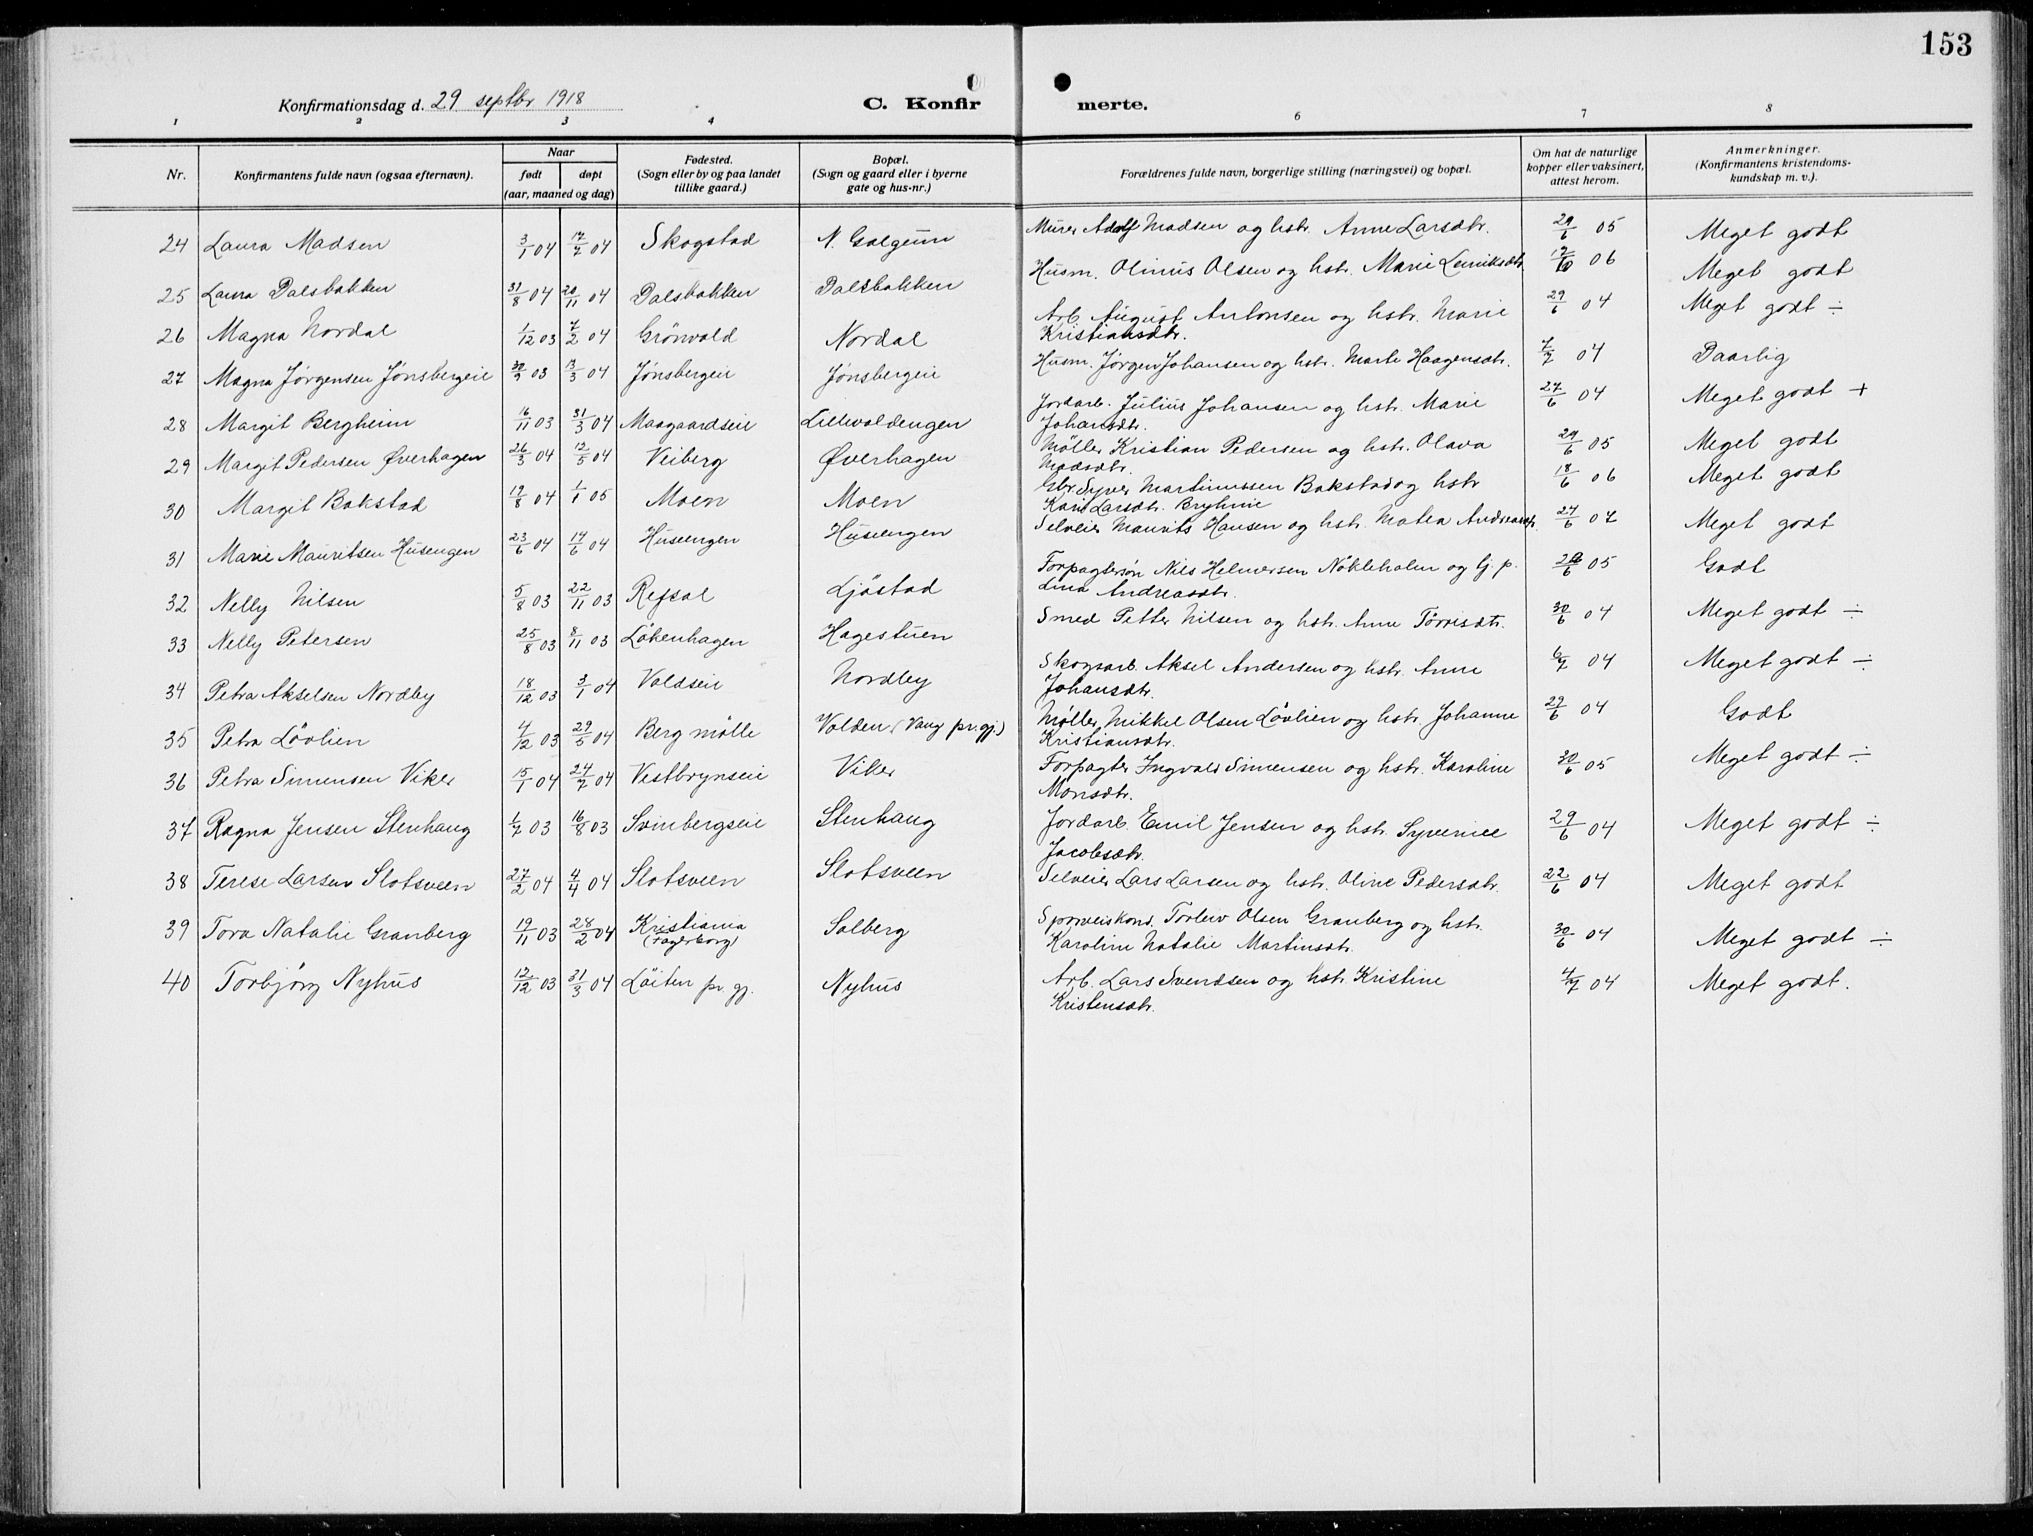 153
Konfirmationsdag d. 29 septbr 1918
C. Konfirmerte.
1 2 3 4 6 7 8
Nr. | Konfirmantens fulde navn (ogsaa efternavn). | Naar født døpt (aar, maaned og dag) | Fødested. (Sogn eller by og paa landet tillike gaard.) | Bopæl. (Sogn og gaard eller i byerne gate og hus-nr.) | Forældrenes fulde navn, borgerlige stilling (næringsvei) og bopæl. | Om hat de naturlige kopper eller vaksinert, attest herom. | Anmerkninger. (Konfirmantens kristendoms-kundskap m. v.).
24 Laura Madsen 3/1 04 17/7 04 Skogstad N. Galgeum Murer Adolf Madsen og hstr. Anne Larsdtr. 29/6 05 Meget godt
25 Laura Dalsbakken 31/8 04 20/11 04 Dalsbakken Dalsbakken Husm. Olinus Olsen og hstr. Marie 06 Meget godt
26 Magna Nordal 1/12 03 7/2 04 Grönvold Nordal Arb. August Antonsen og hstr. Marie Kristiansdtr. 29/6 04 Meget godt ÷
27 Magna Jørgensen Jønsbergeie 30/9 03 13/3 04 Jønsbergeie Jønsbergeie Husm. Jørgen Johansen og hstr. Marte Haagensdtr. 7/7 04 Daarlig
28 Margit Bergheim 16/11 03 31/3 04 Maagaardseie Lillevoldengen Jordarb. Julius Johansen og hstr. Marie Johansdtr. 27/6 04 Meget godt +
29 Margit Pedersen Øverhagen 26/3 04 12/5 04 Veiberg Øverhagen Møller Kristian Pedersen og hstr. Olava Madsdtr. 29/6 05 Meget godt
30 Margit Bakstad 19/8 04 1/1 05 Moen Moen Gbr. Syver Martinussen Bakstad og hstr. Kari Larsdtr. Bryhnie 18/6 06 Meget godt
31 Marie Mauritsen Husengen 23/6 04 14/6 04 Husengen Husengen Selveier Maurits Hansen og hstr. Matea Andreasdtr. 27/6 07 Meget godt
32 Nelly Nilsen 5/8 03 22/11 03 Refsal Ljøstad Forpagtersøn Nils Helmersen Nökleholm og Gj. p. Lina Andreasdtr. 05 Godt
33 Nelly Petersen 25/8 03 8/11 03 Løkenhagen Hagestuen Smed Petter Nilsen og hstr. Anne Törrisdtr. 30/6 04 Meget godt ÷
34 Petra Akselsen Nordby 18/12 03 3/1 04 Voldseie Nordby Skogsarb. Aksel Andersen og hstr. Anne Johansdtr. 6/7 04 Meget godt ÷
35 Petra Lövlien 4/12 03 29/5 04 Berg mölle Volden (Vang pr.gj.) Møller Mikkel Olsen Løvlien og hstr. Johanne Kristiansdtr. 29/6 04 Godt
36 Petra Simensen Viker 15/1 04 24/7 04 Vestbrynseie Viker Forpagter Ingvald Simensen og hstr. Karoline Monsdtr. 30/6 05 Meget godt ÷
37 Ragna Jensen Stenhaug 1/7 03 16/8 03 Svinbergseie Stenhaug Jordarb. Emil Jensen og hstr. Syverine Jacobsdtr. 29/6 04 Meget godt ÷
38 Terese Larsen Slotsveen 27/2 04 4/4 04 Slotsveen Slotsveen Selveier Lars Larsen og hstr. Oline Pedersdtr. 22/6 04 Meget godt
39 Tora Natalie Granberg 19/11 03 28/2 04 Kristiania (Fagerborg) Solberg Sporveiskond. Torleiv Olsen Granberg og hstr. Karoline Natalie Martinsdtr. 30/6 04 Meget godt ÷
40 Torbjørg Nyhus 12/12 03 31/3 04 Löiten pr. gj. Nyhus Arb. Lars Svendsen og hstr. Kristine Kristensdtr. 4/7 04 Meget godt.